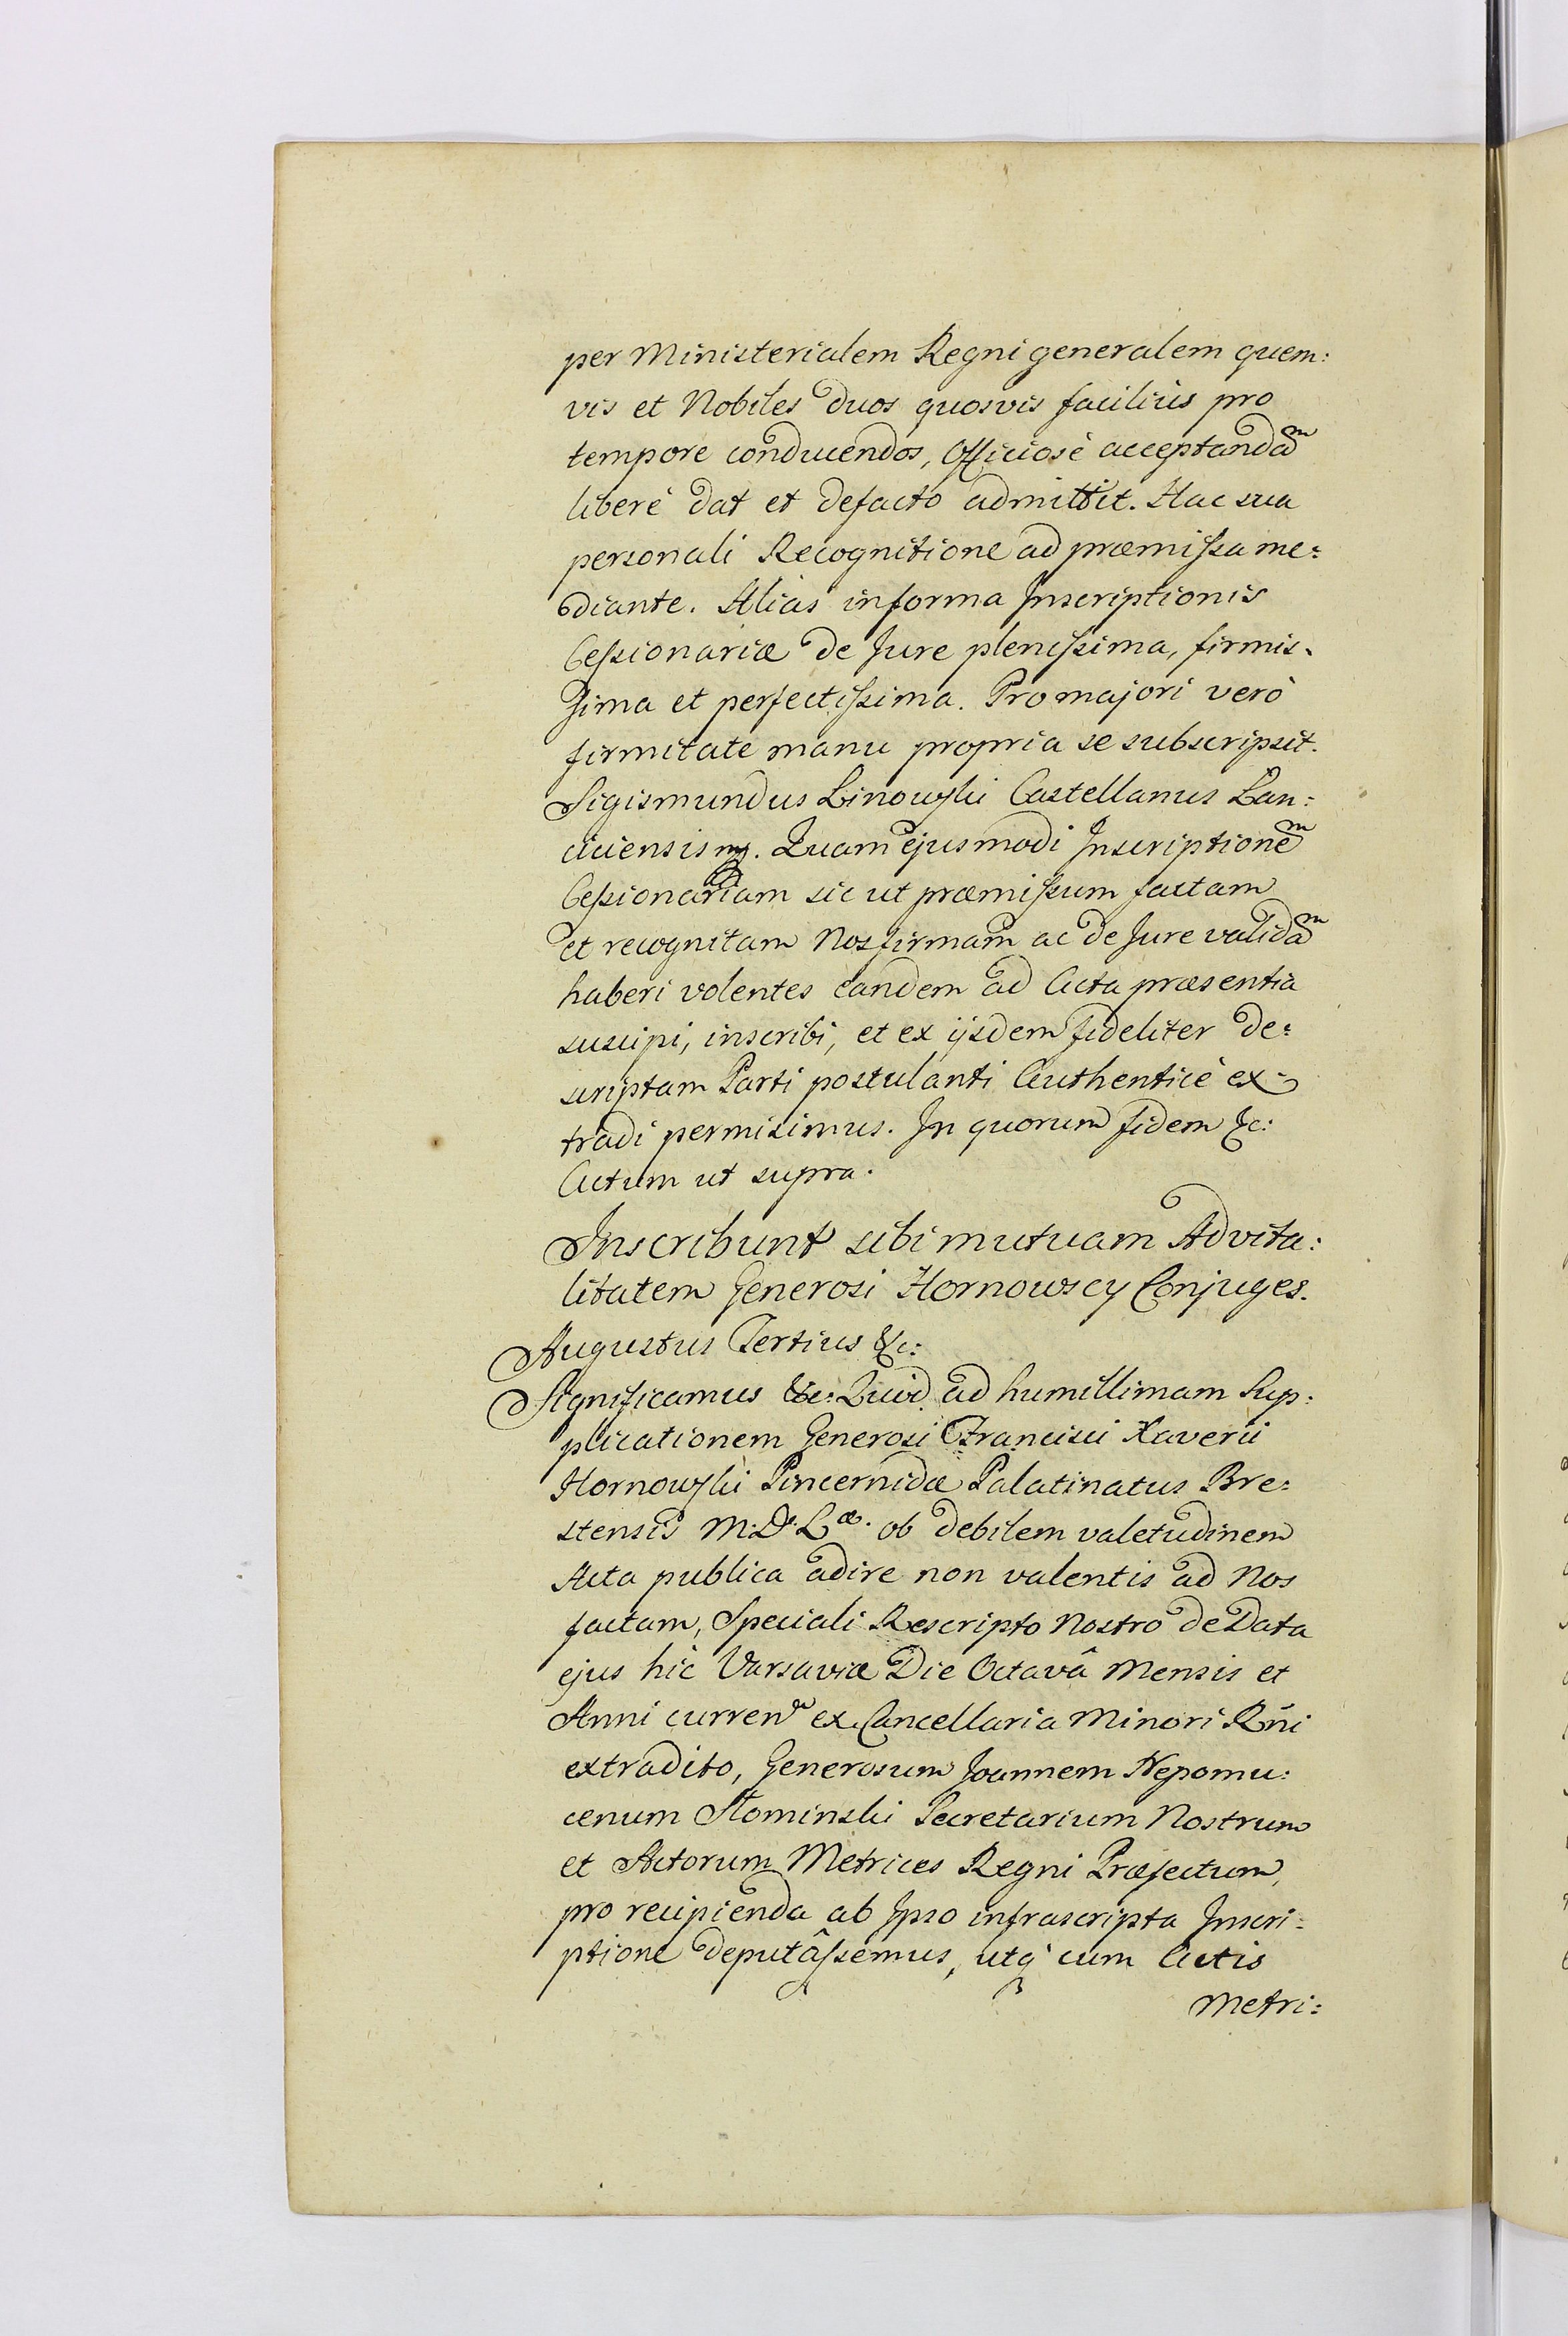 per Ministerialem Regni generalem quem:
vis et Nobiles duos quosvis faciliùs pro
tempore conducendos, Officiosè acceptandãm
liberè dat et defacto admittit. Hac sua
personali Recognitione ad præmissa me:
diante. Aliàs in forma Inscriptionis
Cessionariæ de Jure plenissima, firmis-
sima et perfectissima. Pro majori verò
firmitate manu propria se subscripsit.
Sigismundus Linowski Castellanus Lan:
ciciensis mp. Quam ejusmodi Inscriptionem
Cessionariam sic ut præmissum factam
et recognitam Nos firmam ac de Jure validam
haberi volentes eandem ad Acta præsentia
suscipi, inscribi, et ex ijsdem fideliter de:
scriptam Parti postulanti Authenticè ex-
tradi permisimus. In quorum fidem &c:
Actum ut supra.
Inscribunt sibi mutuam Advita:
litatem Generosi Hornowscy Conjuges.
Augustus Tertius &c:
Significamus &c: Quod ad humillimam Sup:
plicationem Generosi Francisci Xaverii
Hornowski Pincernidæ Palatinatus Bre:
stensis M: D. L æ. ob debilem valetudinem
Acta publica adire non valentis ad Nos
factam, Speciali Rescripto Nostro de Data
ejus hîc Varsaviæ Die Octavâ Mensis et
Anni curren ex Cancellaria Minori Rñi
extradito, Generosum Joannem Nepomu:
cenum Słominski Secretarium Nostrum
et Actorum Metrices Regni Præfectum,
pro recipienda ab Ipso infrascripta Inscri:
ptione deputâssemus, utq cum Actis
Metri: